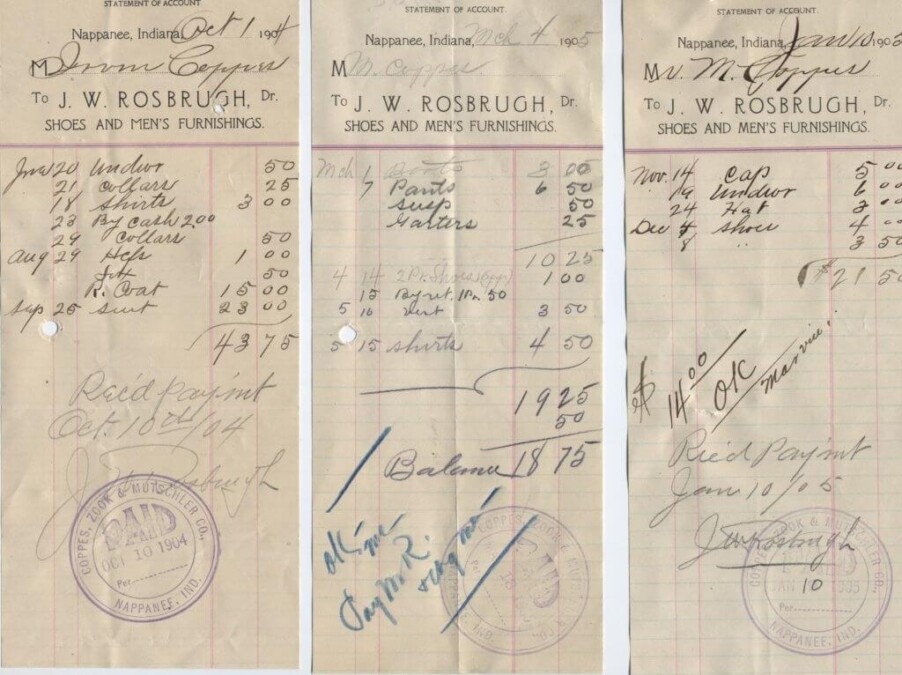 STATEMENT OF ACCOUNT
Nappanee, Indiana, Oct 1 1904
M Irvin Coppes
To J. W. ROSBRUGH, Dr.
SHOES AND MEN'S FURNISHINGS.
20 Undwr 50
21 collars 25
18 shirts 3 00
23 By cash 2.00
29 collars 50
Aug 29 1 00
50
R. Coat 15 00
Sep 25 suit 23 00
43 75
Rec'd Paym't
Oct. 10th/04
J W Rosbrugh
COPPES, ZOOK & MUTSCHLER CO.,
PAID
OCT 10 1904
Per
NAPPANEE, IND.
STATEMENT OF ACCOUNT.
Nappanee, Indiana, Mch 4 1905
M M. Coppes
To J. W. ROSBRUGH, Dr.
SHOES AND MEN'S FURNISHINGS.
Mch 1 Boots 3 00
7 Pants 6 50
Susp 50
Garters 25
10 25
4 14 2 Pr. Shoes 1 00
15 By ret. 1 Pr. 50
5 10 3 50
5 15 shirts 4 50
19 25
50
Balance 18 75
OK
Pay
COPPES, ZOOK &
PAID
IND.
STATEMENT OF ACCOUNT.
Nappanee, Indiana, Jan 10 190
M M. Coppes
To J. W. ROSBRUGH, Dr.
SHOES AND MEN'S FURNISHINGS.
Nov. 14 Cap 5 00
19 Undwr 6 00
24 Hat 3 00
Dec 4 Shoes 4 00
8 " 3 50
$21 50
$14 00 OK
Rec'd Paym't
Jan 10/05
J W Rosbrugh
COPPES, ZOOK & MUTSCHLER CO.,
JAN 10 1905
Per
NAPPANEE, IND.